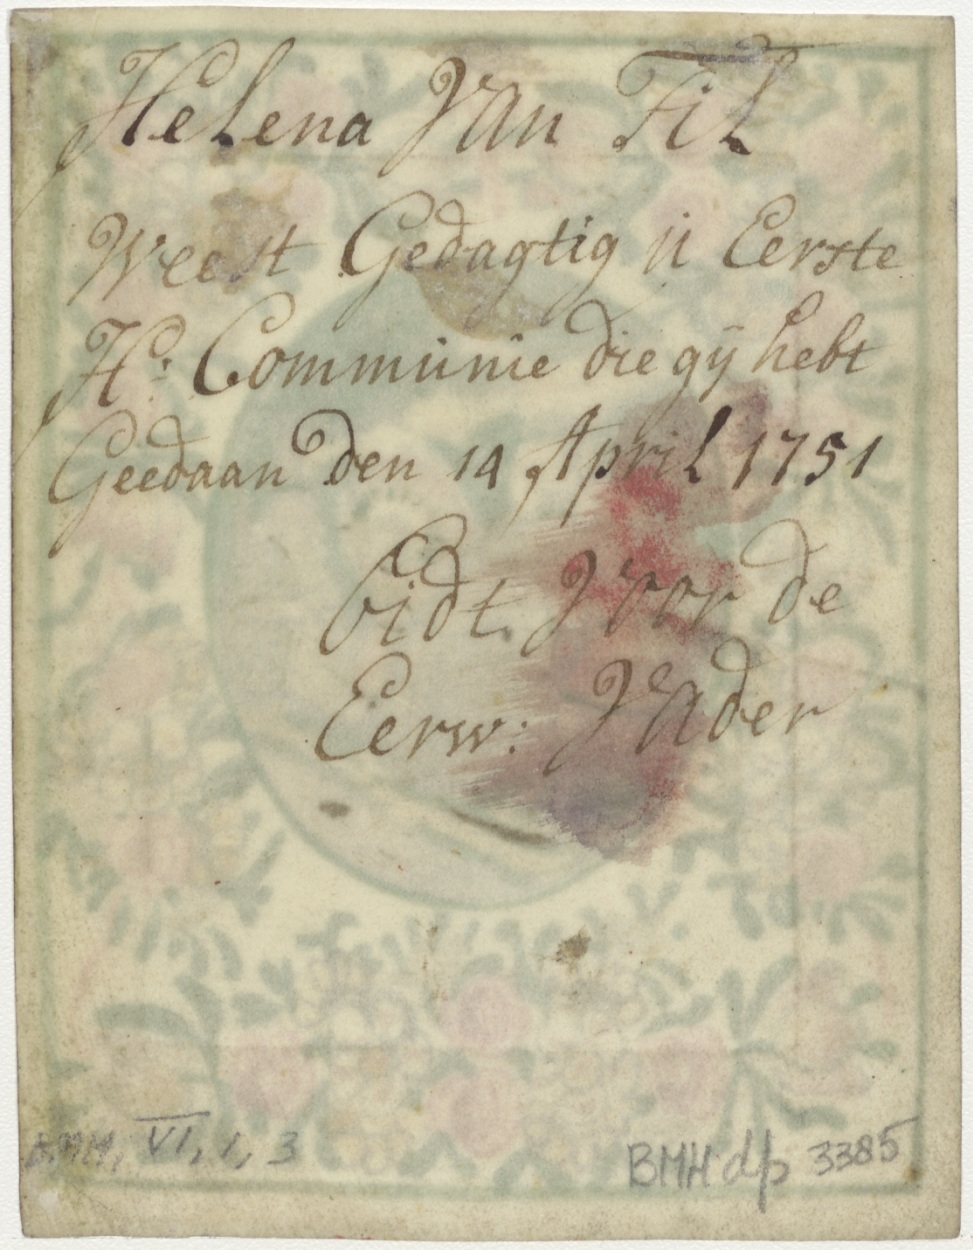 Helena Van Fil
Weest Gedagtig ü Eerste
H: Communie die gÿ hebt
Geedaan den 14 April 1751
bidt Voor de
Eerw: Vader
BMH, VI, 1, 3
BMH dp 3385